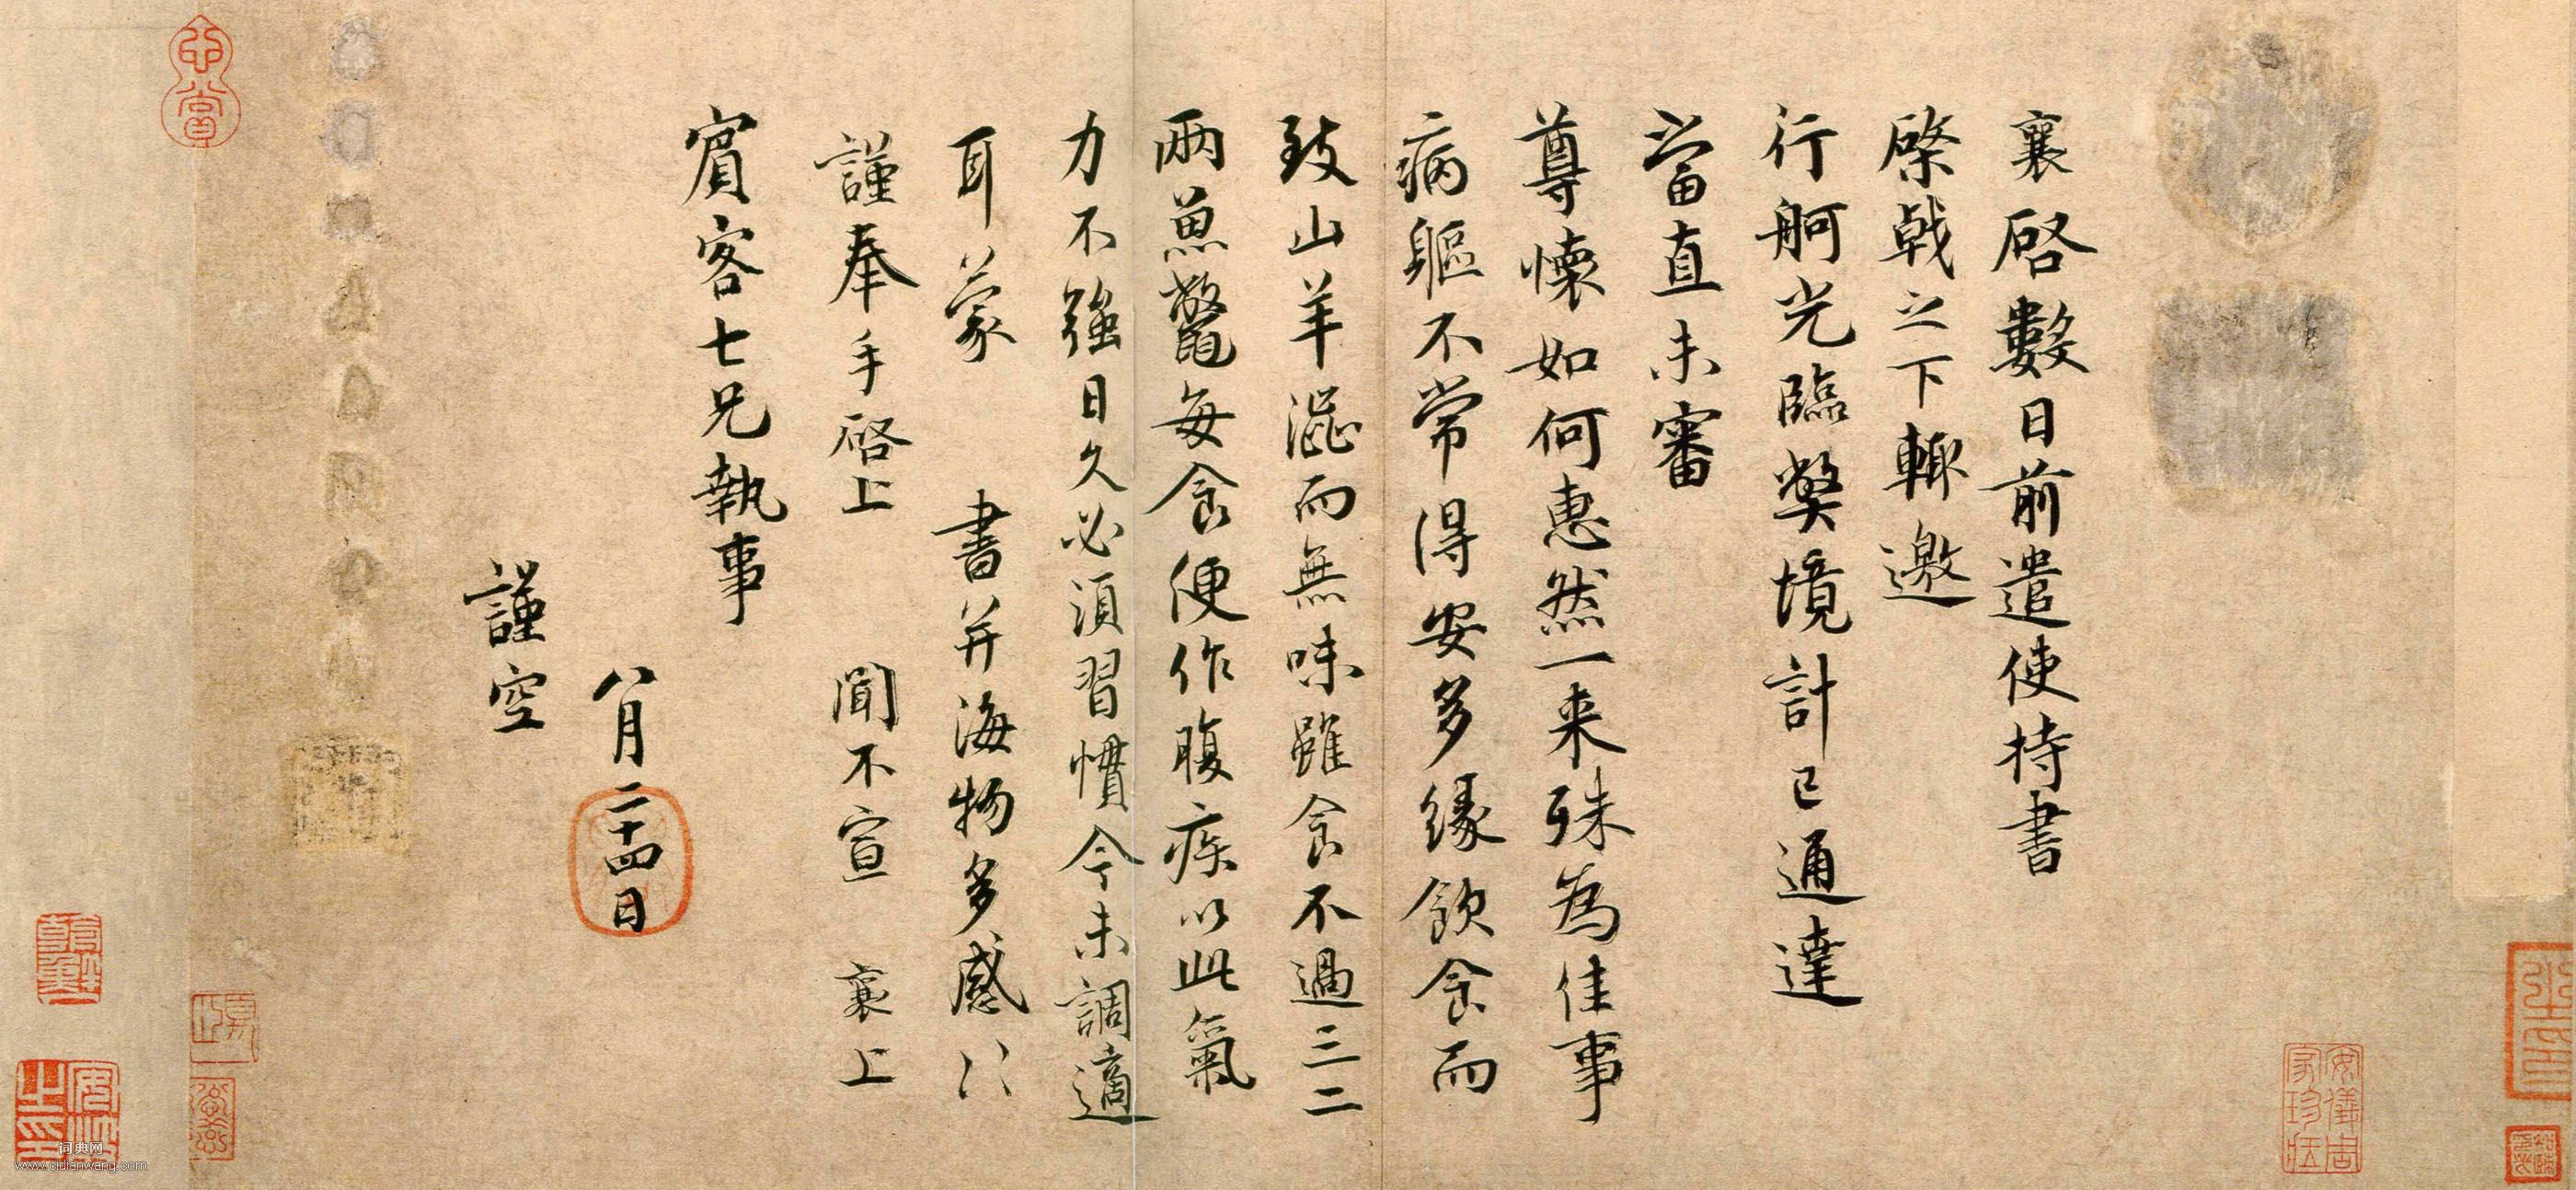 襄啓數日前遣使持書
棨戟之下輙邀
行舸光臨弊境計已通達
當直未審
尊懷如何惠然一来殊為佳事
病軀不常得安多緣飲食而
致山羊澁而無味雖食不過三二
兩魚鼈每食便作腹疾以此氣
力不強日久必須習慣今未調適
耳蒙 書并海物多感〻
謹奉手啓上 聞不宣 襄上
賓客七兄執事
八月二十四日
謹空
安儀周家珍藏
心賞
詞典网
www.cidianwang.com